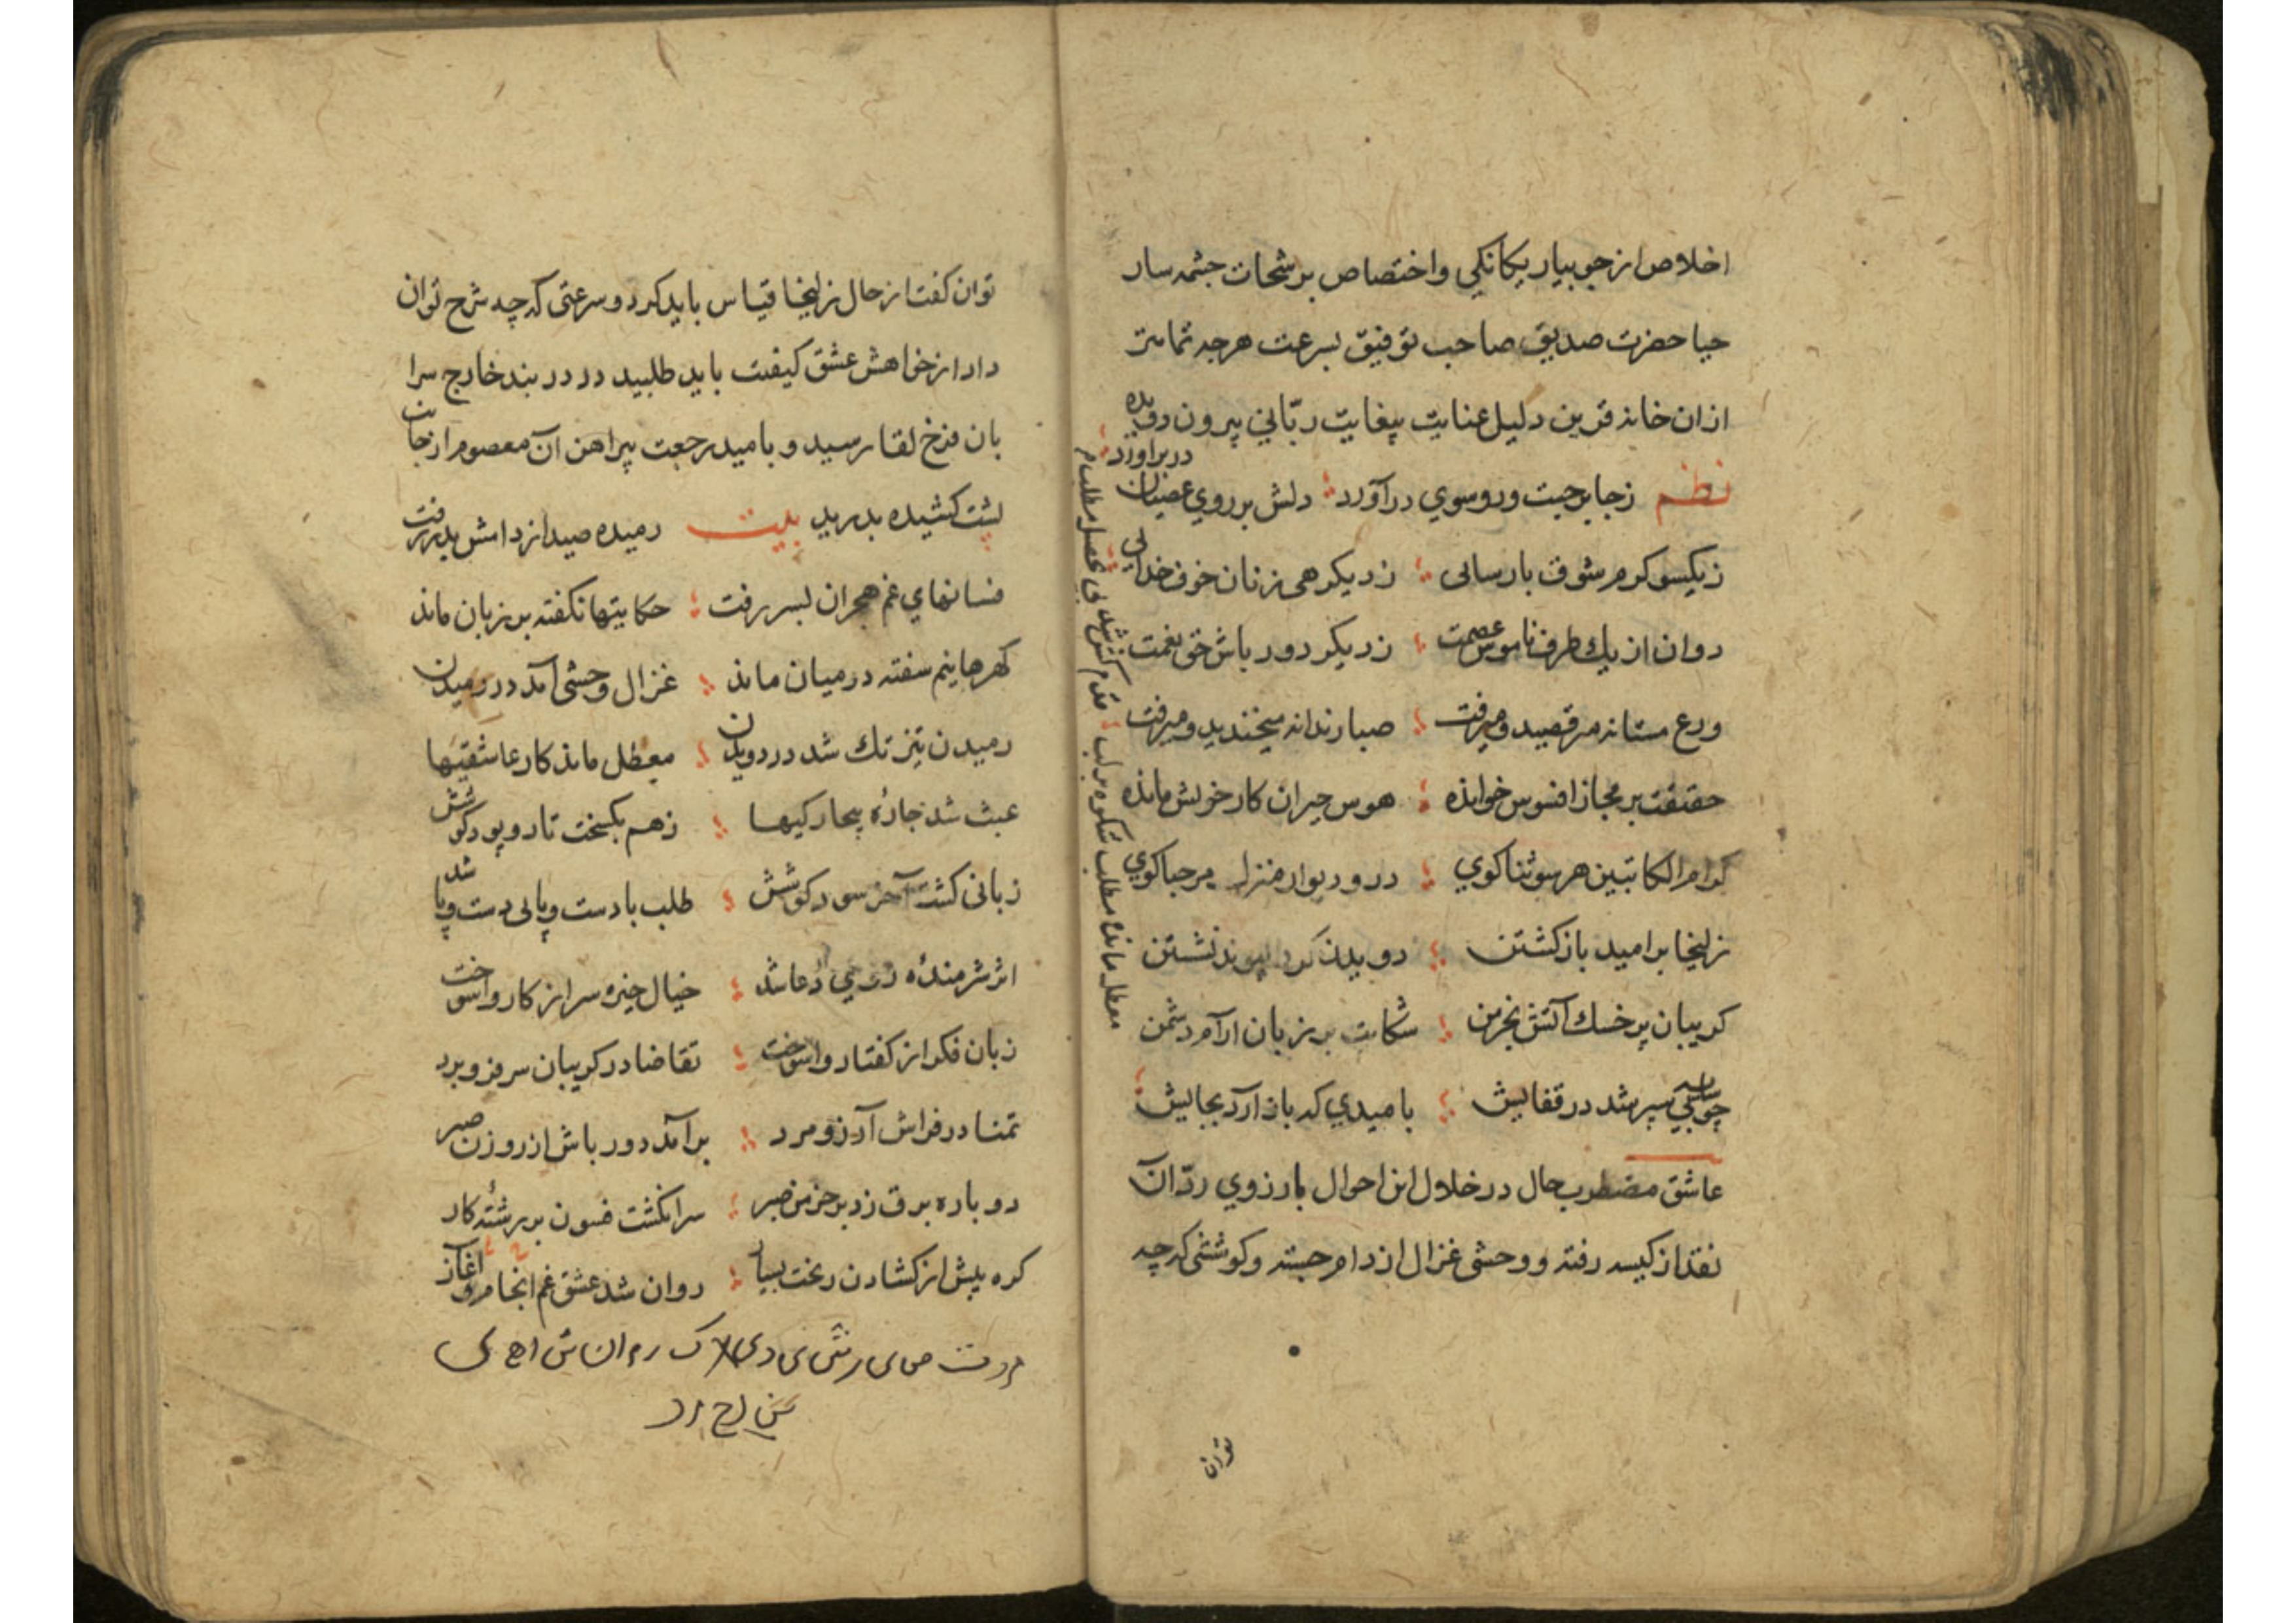 اخلاص از جویبار یکانکی و اختصاص برشحات جشمه سار
حیا حضرت صدیق صاحب توفیق بسرعت هرچه تمامتر
ازان خانه قرین دلیل عنایت بیغایت ربّانی بیرون دویده
نظم زجا برجست و رو سوی در آورد دلش بر روی عصیان در بر آورد
زیکسو کرم شوق بارسائی زدیکر همزنان خوف خدائی
روان از یك طرف ناموس عصمت زدیکر دور باش حق نعمت
ورع مستانه مرقصید و میرفت صبا رندانه میخندید و میرفت
حقیقت بر مجاز افسوس خوانده هوس حیران کار خویش مانده
کرام الکاتبین هر سو ثناکوی در و دیوار منزل مرحباکوی
زلیخا بر امید بازکشتن دویدن کرد پیوند نشستن
کریبان پر خسك آتش بخرمن شکایت بر زبان آرام دشمن
چو سایه پی سپر شد در قفایش بامیدی که باز آرد بجایش
عاشق مضطرب حال در خلال این احوال بارزوی ردّ آن
نقد از کیسه رفته و وحشی غزال از دام جسته و کوششی که چه
توان
معطل مانده مطلب شکوه بر لب
توان کفت از حال زلیخا قیاس باید کرد و سرعتی که چه شرح توان
داد از خواهش عشق کیفیت باید طلبید در در بند خارج سرا
بان فرخ لقا رسید و بامید رجعت پیراهن آن معصوم از جانب
پشت کشیده بدرید بیت رمیده صید از دامش بدر رفت
فسانهای غم هجران بسر رفت حکایتها نکفته بر زبان ماند
کهرها نیم سفته در میان ماند غزال وحشی آمد در رمیدن
رمیدن تیز تك شد در دویدن معطل ماند کار عاشقیها
عبث شد چارهٔ بیچارکیها زهم بکسخت تار و پود کوشش
زیانی کشت آخر سود کوشش طلب با دست و پا بی دست و پا شد
اثر شرمندهٔ روی دعا شد خیال خیره سر از کار واسوخت
زبان فکر از کفتار واسوخت تقاضا در کریبان سر فرو برد
تمنا در فراش آرزو مرد بر آمد دور باش از روزن صبر
دوباره برق زد بر خرمن صبر سر انکشت فسون بر رشتهٔ کار
کره پیش از کشادن ریخت بسیار روان شد عشق غم انجام و آغاز